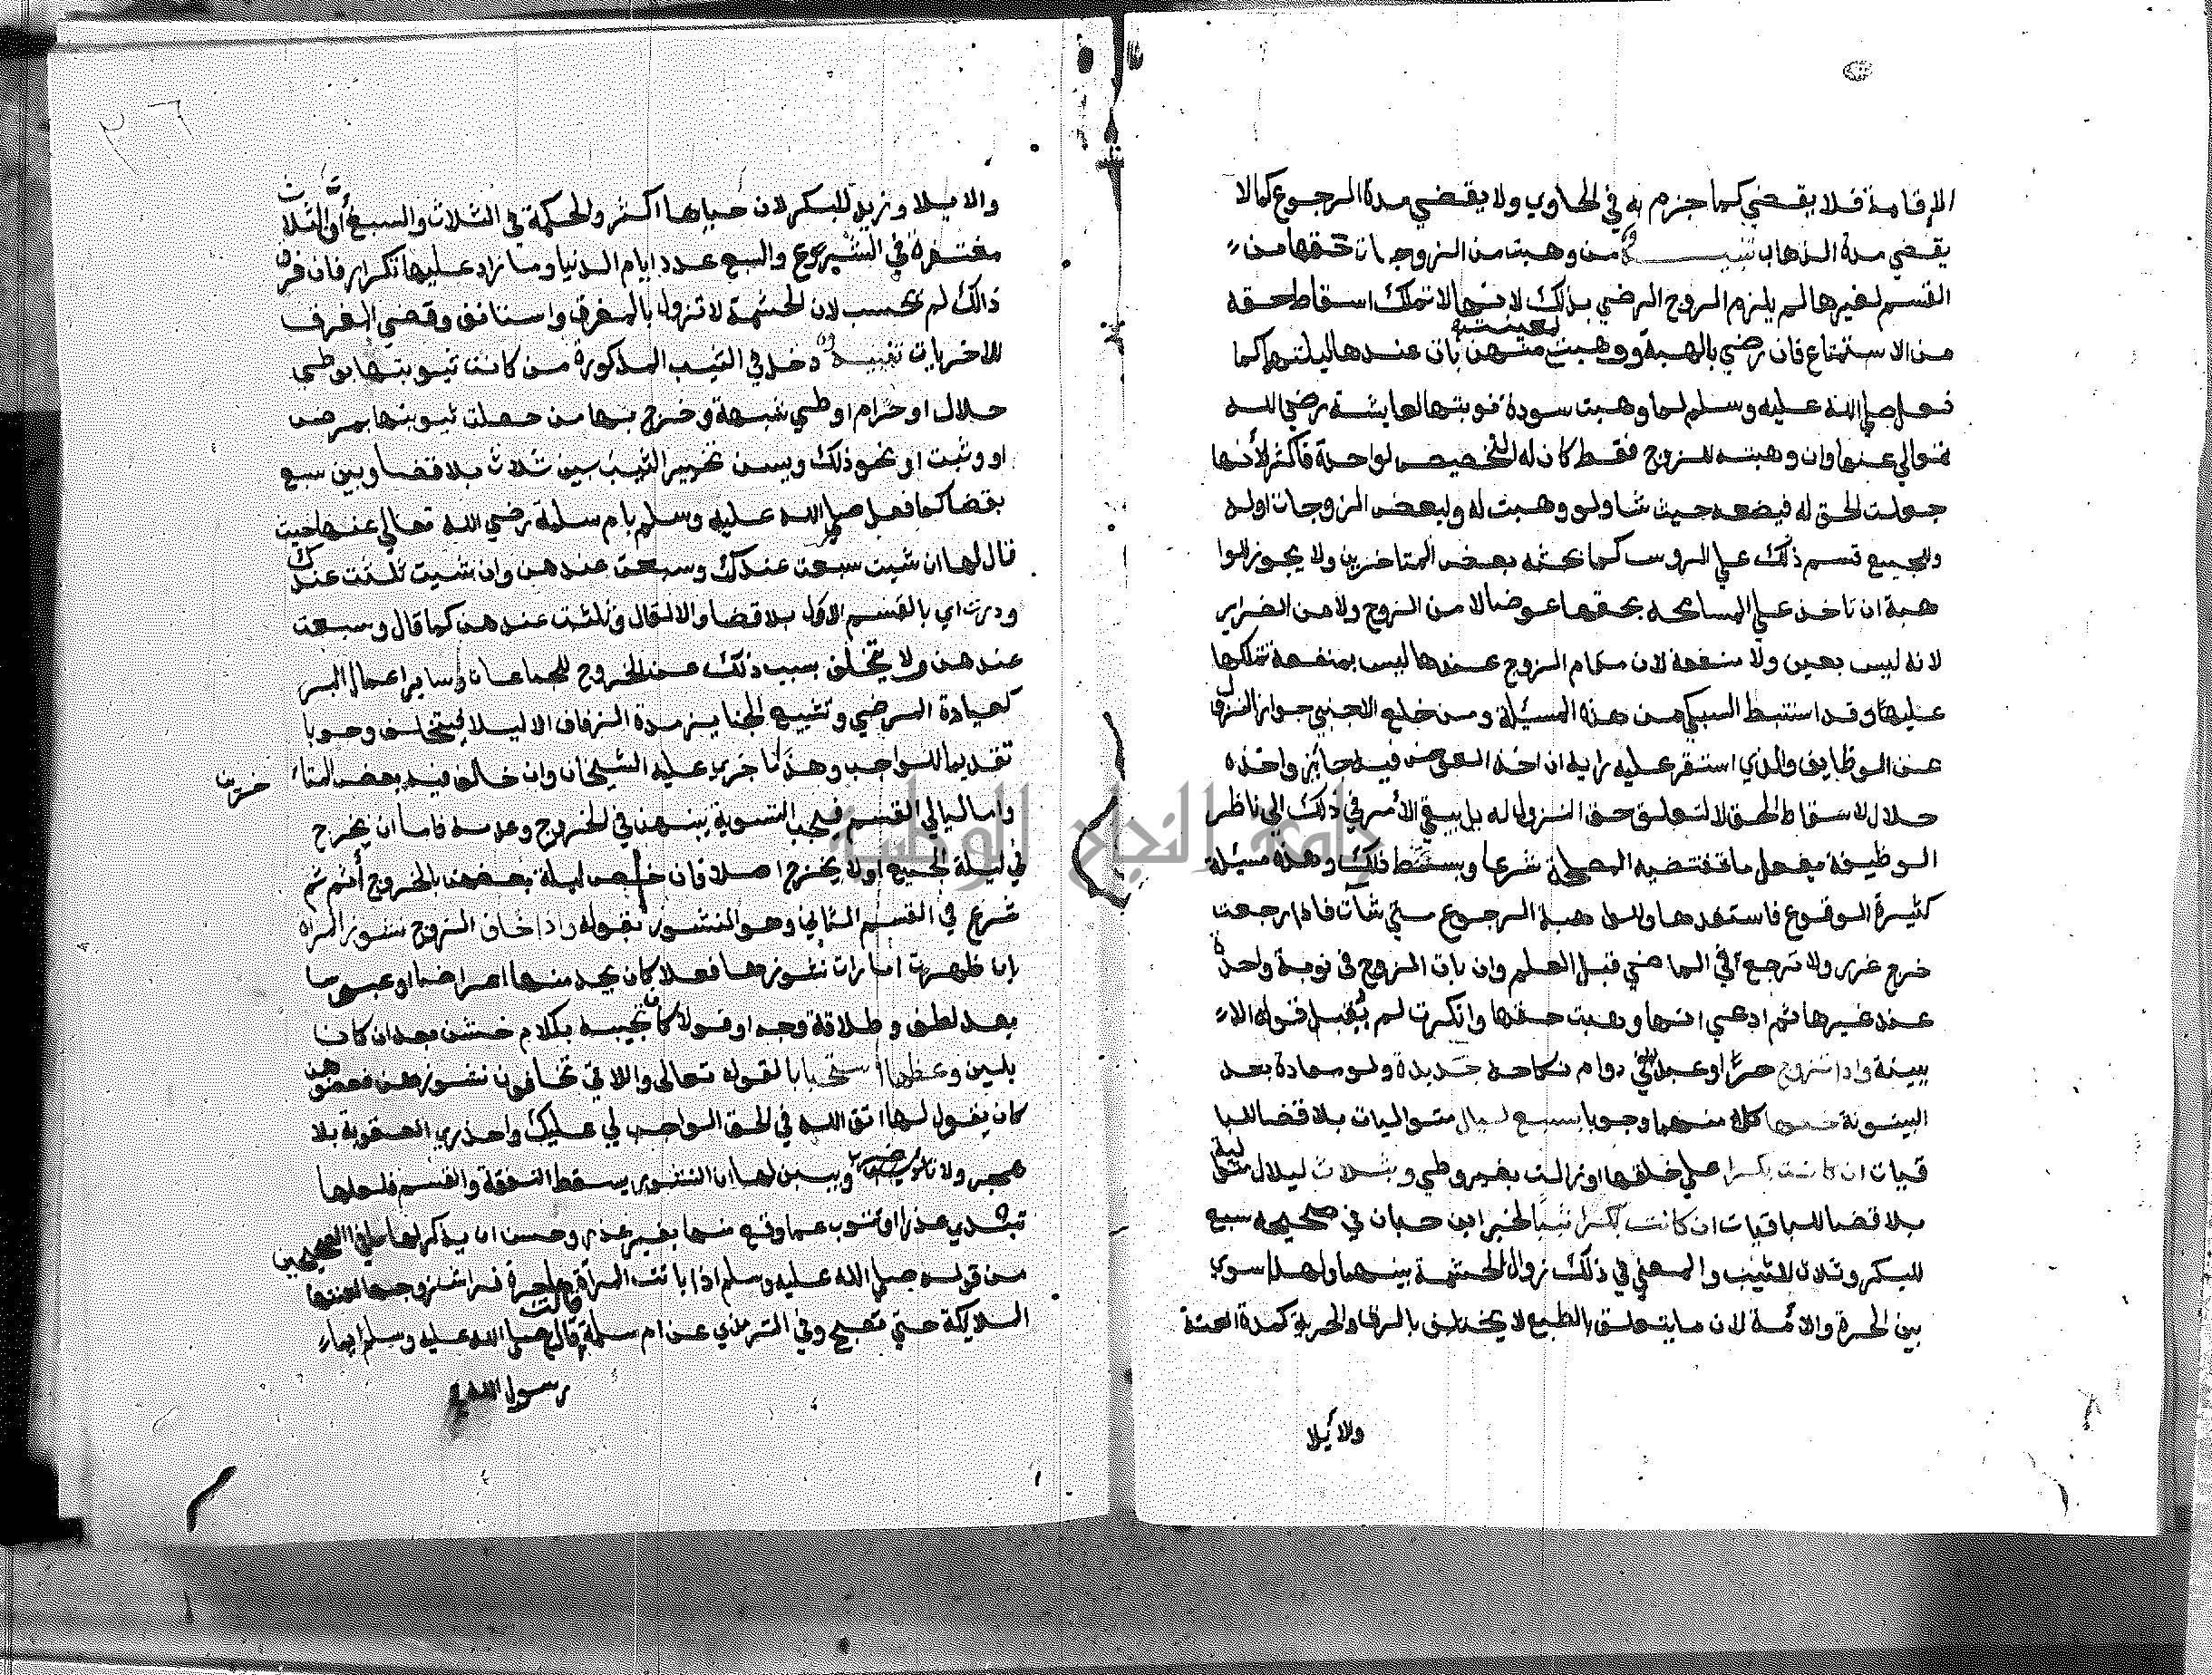 الإقامة فلا يقضي كما جزم به في الحاوي ولا يقضي مدة الرجوع كما لا
يقضي مدة الذهاب تنبيه من وهبت من الزوجات حقها من
القسم لغيرها لم يلزم الزوج الرضي بذلك لانها لا تملك اسقاط حقه
من الاستمتاع فان رضي بالهبة ووهبت لمعينة منهن بات عندها ليلتيهما كما
فعل صلى الله عليه وسلم لما وهبت سودة نوبتها لعايشة رضي الله
تعالي عنها وان وهبته للزوج فقط كان له التخصيص لواحدة فاكثر لأنها
جعلت الحق له فيضعه حيث شا ولو وهبت له ولبعض الزوجات او له
وللجميع قسم ذلك علي الروس كما بحثه بعض المتاخرين ولا يجوز للوا
هبة ان تاخذ علي المسامحة بحقها عوضا لا من الزوج ولا من الضراير
لانه ليس بعين ولا منفعة لان مقام الزوج عندها ليس بمنفعة تملكها
عليه وقد استنبط السبكي من هذه المسئلة ومن خلع الاجنبي جواز النزول
عن الوظايف والذي استقر عليه رايه ان اخذ العوض فيه جائز واخذه
حلال لاسقاط الحق لا لتعلق حق النزول له بل يبقي الأمر في ذلك الي ناظر
الوظيفة يفعل ما تقتضيه المصلحة شرعا وبسط ذلك وهذه مسئلة
كثيرة الوقوع فاستفدها وللواهبة الرجوع متي شآت فاذا رجعت
خرج فورا ولا ترجع في الماضي قبل العلم وان بات الزوج في نوبة واحدة
عند غيرها ثم ادعي انها وهبت حقها وانكرت لم يقبل قوله الا
ببينة واذا تزوج حرًا او عبد في دوام نكاحه جديدة ولو معادة بعد
البينونة خصها كل منهما وجوبا بسبع ليال متواليات بلا قضا للبا
قيات ان كانت بكرا علي خلقها او زالت بغير وطي وبثلاث ليلال متوالية
بلا قضا للباقيات ان كانت ثيبا لخبر ابن حبان في صحيحه سبع
للبكر وثلاث للثيب والمعني في ذلك زوال الحشمة بينهما ولهذا سوي
بين الحرة والأمة لان ما يتعلق بالطبع لا يختلف بالرق والحرية كمدة العنة
والايلا
والايلا وزيد للبكر لان حياها اكثر والحكمة في الثلاث والسبع أن الثلاث
مغتفرة في الشرع والسبع عدد ايام الدنيا وما زاد عليها تكرار فان فرق
ذالك لم تحسب لان الحشمة لا تزول بالمفرق واستانف وقضي المفرق
للاخريات تنبيه دخل في الثيب المذكورة من كانت ثيوبتها بوطي
حلال او حرام او وطي شبهة وخرج بها من حصلت ثيوبتها بمرض
او وثبت او نحو ذلك ويسن تخيير الثيب بين ثلاث بلا قضا وبين سبع
بقضا كما فعل صلى الله عليه وسلم بام سلمة رضي الله تعالي عنها حيث
قال لها ان شيت سبعت عندك وسبعت عندهن وان شيت ثلثت عندك
ودرت اي بالقسم الاول بلا قضا والا لقال وثلثت عندهن كما قال وسبعت
عندهن ولا يتخلف بسبب ذلك عن الخروج للجماعات وساير اعمال البر
كعيادة المرضي وتشييع الجنايز مدة الزفاف الا ليلا فيتخلف وجوبا
تقديما للواجب وهذا ما جري عليه الشيخان وان خالف فيه بعض المتاخرين
واما ليالي القسم فيجب التسوية بينهن في الخروج وعدمه فاما أن يخرج
في ليلة الجميع او لا يخرج اصلا فان خص ليلة بعضهن بالخروج أثم ثم
شرع في القسم الثاني وهو النشوز بقوله واذا خاف الزوج نشوز المراه
بان ظهرت امارات نشوزها فعلا كان يجد منها اعراضا او عبوسا
بعد لطف وطلاقة وجه او قولا كأن تجيبه بكلام خشن بعد ان كان
بلين وعظها استحبابا لقوله تعالى واللاتي تخافون نشوزهن فعظوهن
كان يقول لها اتق الله في الحق الواجب لي عليك واحذري العقوبة بلا
هجر ولا ضرب ويبين لها ان النشوز يسقط النفقة والقسم فلعلها
تبدي عذرا او تتوب عما وقع منها بغير عذر وحسن ان يذكر لها ما في الصحيحين
من قوله صلى الله عليه وسلم اذا باتت المرأة هاجرة فراش زوجها لعنتها
الملايكة حتي تصبح وفي الترمذي عن ام سلمة قالت قال صلى الله عليه وسلم ايما
رسول الله
جامعة النجاح الوطنية